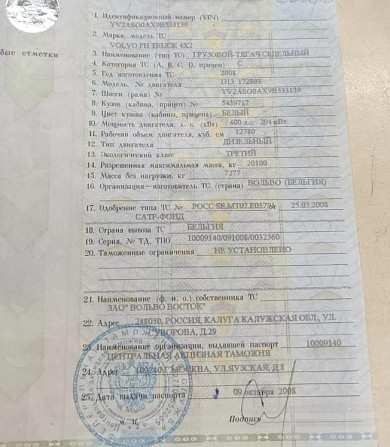 1. Идентификационный номер (VIN)
YV2AS00AX9B533139
2. Марка, модель ТС
VOLVO FH TRUCK 4X2
бые отметки
3. Наименование (тип ТС) ГРУЗОВОЙ-ТЯГАЧ СЕДЕЛЬНЫЙ
4. Категория ТС (A, B, C, D, прицеп) C
5. Год изготовления ТС 2008
6. Модель, № двигателя D13 172893
7. Шасси (рама) № YV2AS00AX9B533139
8. Кузов (кабина, прицеп) № 5459717
9. Цвет кузова (кабины, прицепа) БЕЛЫЙ
10. Мощность двигателя, л. с. (кВт) 400 л.с./ 294 кВт.
11. Рабочий объем двигателя, куб. см 12780
12. Тип двигателя ДИЗЕЛЬНЫЙ
13. Экологический класс ТРЕТИЙ
14. Разрешенная максимальная масса, кг 20100
15. Масса без нагрузки, кг 7277
16. Организация—изготовитель ТС (страна) ВОЛЬВО (БЕЛЬГИЯ)
17. Одобрение типа ТС № РОСС SE.MT02.E05794 25.03.2008
САТР-ФОНД
18. Страна вывоза ТС БЕЛЬГИЯ
19. Серия, № ТД, ТПО 10009140/091008/0032360
20. Таможенные ограничения НЕ УСТАНОВЛЕНО
21. Наименование (ф. и. о.) собственника ТС
ЗАО "ВОЛЬВО ВОСТОК"
22. Адрес 248030, РОССИЯ, КАЛУГА КАЛУЖСКАЯ ОБЛ., УЛ.
СУВОРОВА, Д.29
23. Наименование организации, выдавшей паспорт 10009140
ЦЕНТРАЛЬНАЯ АКЦИЗНАЯ ТАМОЖНЯ
24. Адрес МОСКВА, УЛ.ЯУЗСКАЯ, Д.8
25. Дата выдачи паспорта 09 октября 2008
М. П. Подпись